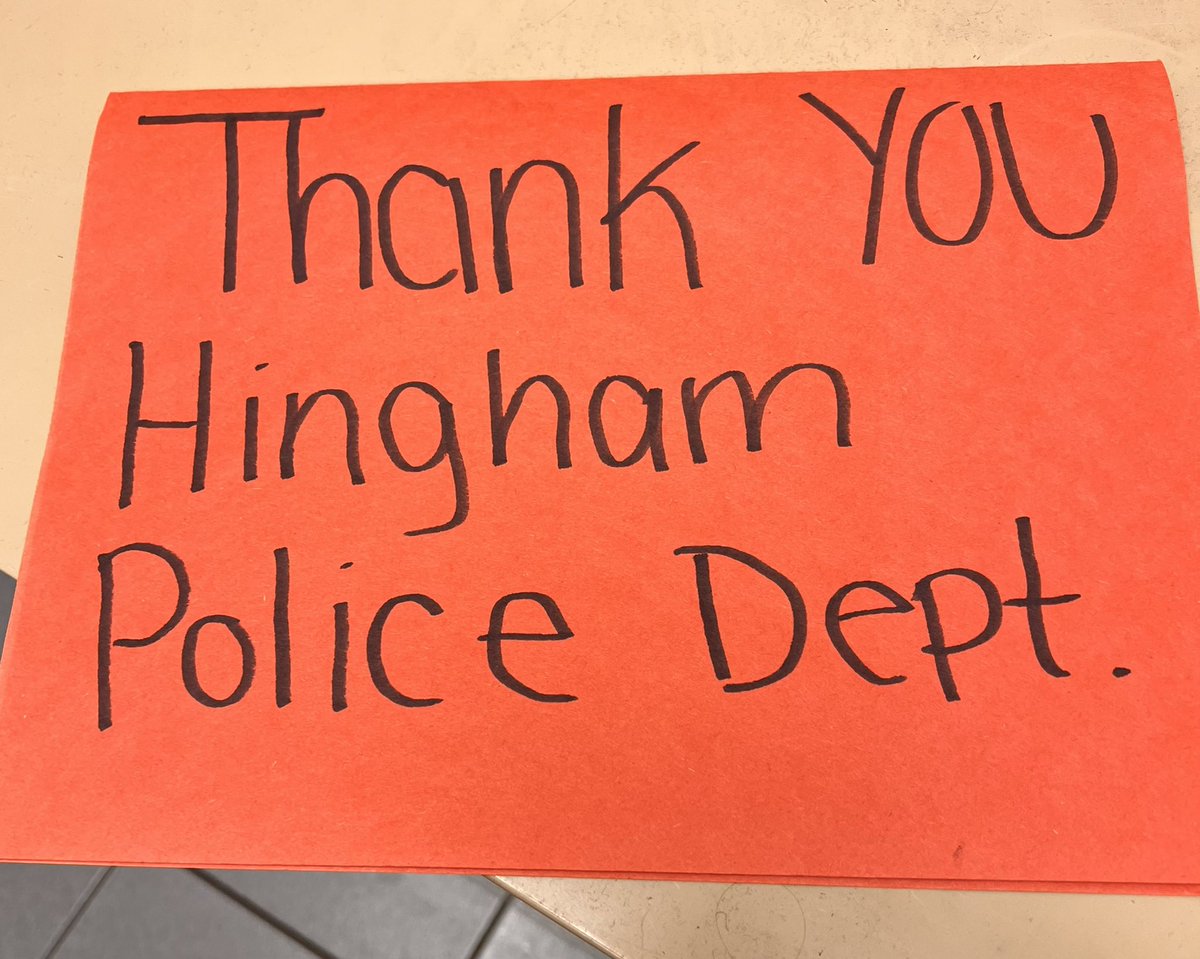 Thank YOU
Hingham
Police Dept.